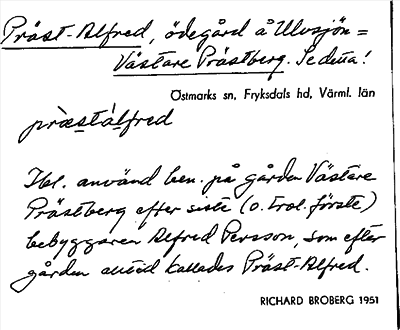 Präst-Alfred, ödegård å Ulvsjön =
Västare Prästberg. Se detta!
Östmarks sn, Fryksdals hd, Värml. län
præstálfred
Ibl. använd ben. på gården Västare
Prästberg efter siste (o. trol. förste)
bebyggaren Alfred Persson, som efter
gården alltid kallades Präst-Alfred.
RICHARD BROBERG 1951